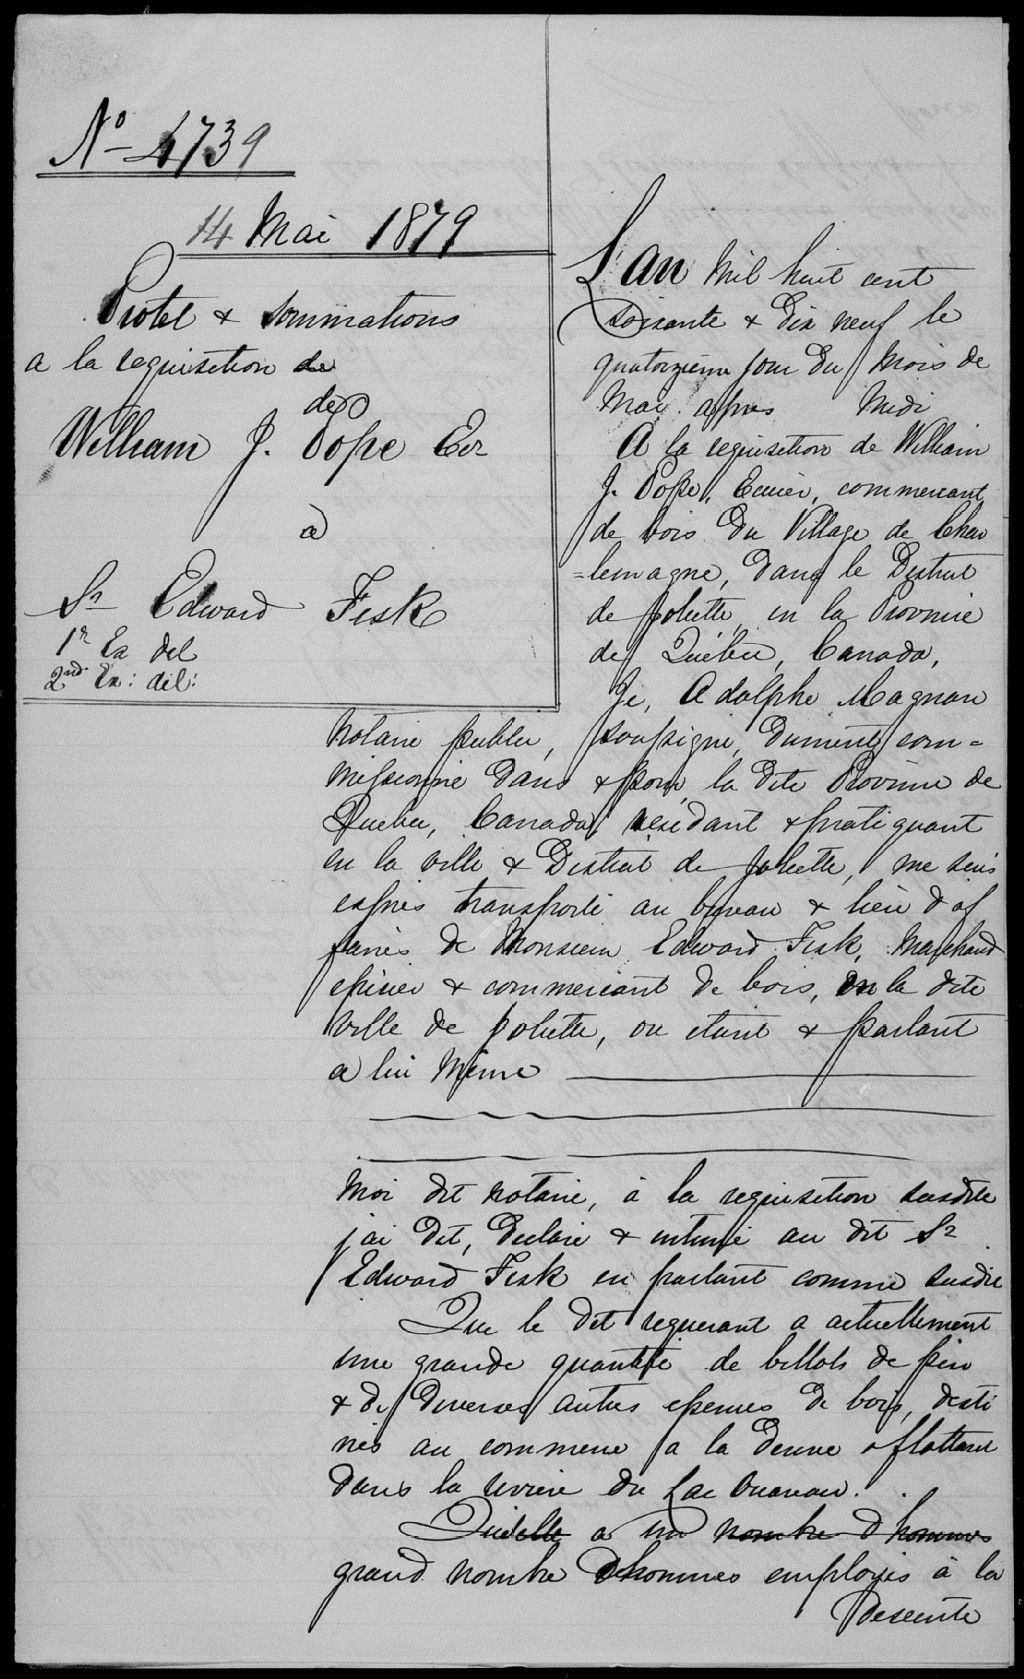 No 4739
14 Mai 1879
Protet & Sommations
a la requisition de
de
William J. Pope Ecr
a
Sr Edward Fisk
1r Ex del
2nd Ex: dél:
L'an Mil huit cent
soixante & dix neuf le
quatorzieme jour du Mois de
Mai apres Midi
A la requisition de William
J. Pope, Ecuier, commercant
de bois du Village de Char
=lemagne, dans le District
de Joliette, en la Province
de Québec, Canada,
Je, Adolphe Magnan
Notaire public, soussigné, dument com=
missionné dans & pour la dite Province de
Quebec, Canada, residant & pratiquant
en la ville & District de Joliette, me suis
exprès transporté au bureau & lieu d'af
faires de Monsieur Edward Fisk, Marchand
épicier & commercant de bois, en la dite
ville de Joliette, ou etant & parlant
a lui Même
Moi dit notaire, à la requisition susdite
j'ai dit, declaré & intimé au dit Sr
Edward Fisk en parlant comme susdit
Que le dit requerant a actuellement
une grande quantité de billots de pin
& de diverses autres especes de bois, desti
nés au commerce a la derive & flottant
dans la riviere du Lac Ouareau.
a un nombre d'hommes
grand nombre d'hommes employés à la
Descente